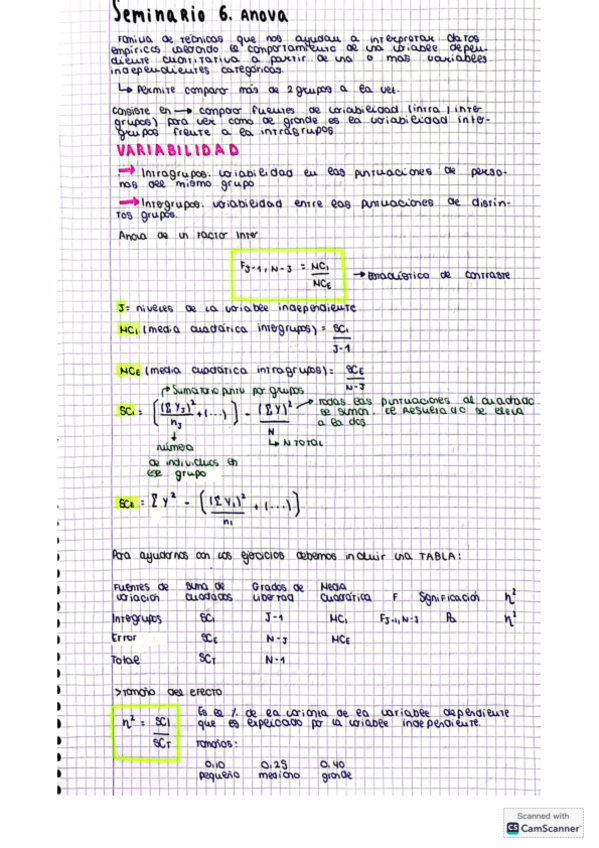 Seminario 6. Anova
Familia de técnicas que nos ayudan a interpretar datos
empíricos valorando el comportamiento de una variable depen-
diente cuantitativa a partir de una o más variables
independientes categóricas.
↳ Permite comparar más de 2 grupos a la vez.
Consiste en → comparar fuentes de variabilidad (intra / inter
grupos) para ver como de grande es la variabilidad inter-
grupos frente a la intragrupos
VARIABILIDAD
→ Intragrupos: variabilidad en las puntuaciones de perso-
nas del mismo grupo
→ Intergrupos: variabilidad entre las puntuaciones de distin-
tos grupos.
Anova de un Factor Inter
F J-1, N-J = MCI / MCE → Estadístico de contraste
J = niveles de la variable independiente
MCI (media cuadrática intergrupos) = SCI / J-1
MCE (media cuadrática intragrupos) = SCE / N-J
↱ Sumatorio puntu por grupos
SCI = [(ΣYJ)² / nJ + (...)] - (ΣY)² / N → Todas las puntuaciones al cuadrado
se suman. El resultado se eleva
a la dos
↳ N TOTAL
↓
número
de individuos en
ese grupo
SCE = ΣY² - ((ΣY1)² / n1 + (...))
Para ayudarnos con los ejercicios debemos incluir una TABLA:
Fuentes de variación Suma de cuadrados Grados de libertad Media cuadrática F Significación η²
Intergrupos SCI J-1 MCI FJ-1, N-J η²
Error SCE N-J MCE
Total SCT N-1
> Tamaño del efecto
η² = SCI / SCT
Es el % de la varianza de la variable dependiente
que es explicado por la variable independiente.
Tamaños:
0,10 0,25 0,40
pequeño mediano grande
Scanned with
CS CamScanner